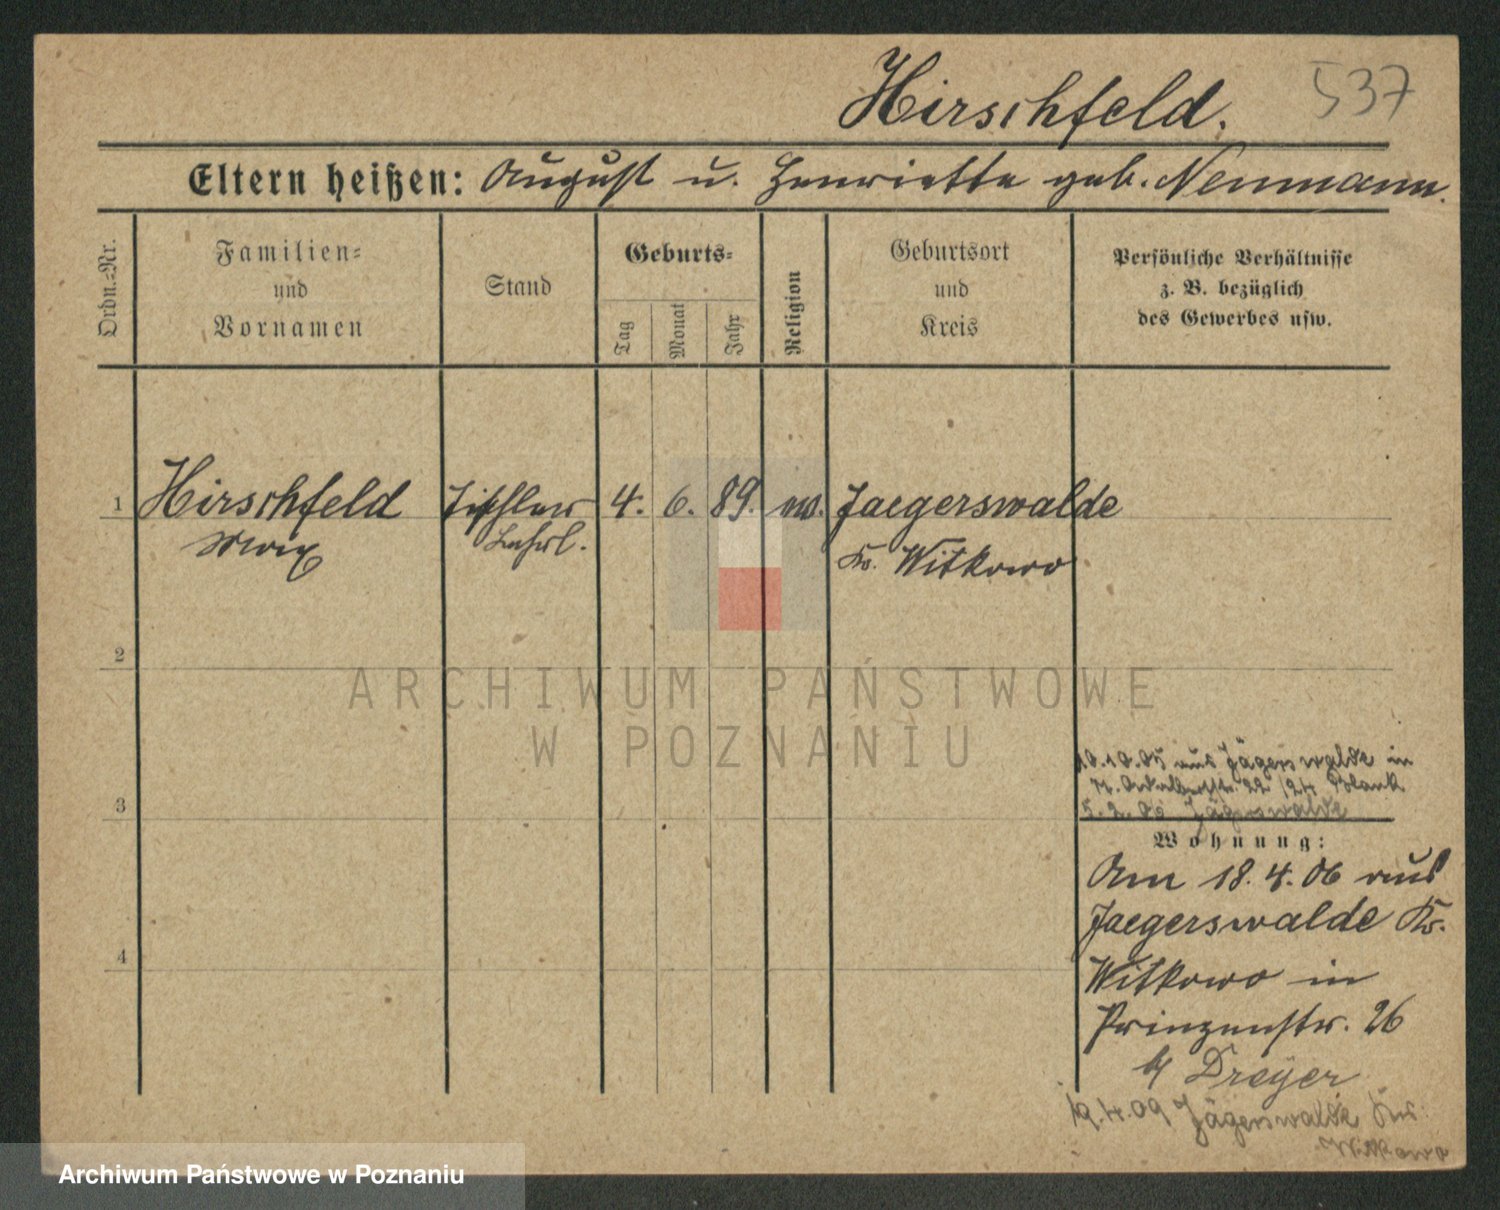 Hirschfeld. 537
Eltern heißen: August u. Henriette geb. Neumann.
Ordn.-Nr.
Familien-
und
Vornamen
Stand
Geburts-
Tag
Monat
Jahr
Religion
Geburtsort
und
Kreis
Persönliche Verhältnisse
z. B. bezüglich
des Gewerbes usw.
1 Hirschfeld Tischler 4. 6. 89. ev. Jaegerswalde
Max Lehrl. Kr. Witkowo
2
ARCHIWUM PAŃSTWOWE
W POZNANIU
10.10.05 aus Jägerswalde in
22/24 Blank
3
5.2.06 Jägerswalde
Wohnung:
Am 18.4.06 aus
Jaegerswalde Kr.
4
Witkowo in
Prinzenstr. 26
b/ Dreyer
19.4.09 Jägerswalde Krs.
Witkowo
Archiwum Państwowe w Poznaniu